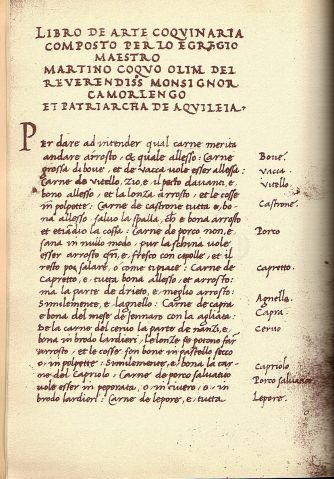 LIBRO DE ARTE COQVINARIA
COMPOSTO PER LO EGREGIO
MAESTRO
MARTINO COQVO OLIM DEL
REVERENDISS MONSIGNOR
CAMORLENGO
ET PATRIARCHA DE AQVILEIA.
Per dare ad intender qual carne merita
andare arrosto, & quale allesso: Carne
grossa di bove, et de vacca vole esser allessa: Bove.
Carne de vitello, zioe, il petto davanti, e, vacca.
bono allesso, et la lonza arrosto, et le cosse vitello.
in polpette: Carne de castrone tutta e, bo Castrone.
na allesso, salvo la spalla, ch, e bona arrosto
et etiadio la cossa: Carne de porco non, e, Porco
sana in nullo modo, pur la schina vole
esser arrosto qn, e, fresco con cepolle, et il
resto poi salare, o como ti piace: Carne de Capretto.
Capretto, e, tutta bona allesso, et arrosto:
ma la parte de drieto, e, meglio arrosto: Agnello.
Similemente, e, lagnello: Carne de capra Capra.
e bona del mese de jennaro con la agliata:
De la carne del cervo la parte de nanzi, e, Cervo
bona in brodo lardieri, Le lonze se potono far
arrosto, et le cosse son bone in pastello secco
o, in polpette: Similemente, e, bona la car Capriolo
ne del Capriolo, Carne de porco salvatico Porco salvatico
vole esser in peperata, o, in civero, o, in Lepore.
brodo lardieri: Carne de lepore, e, tutta